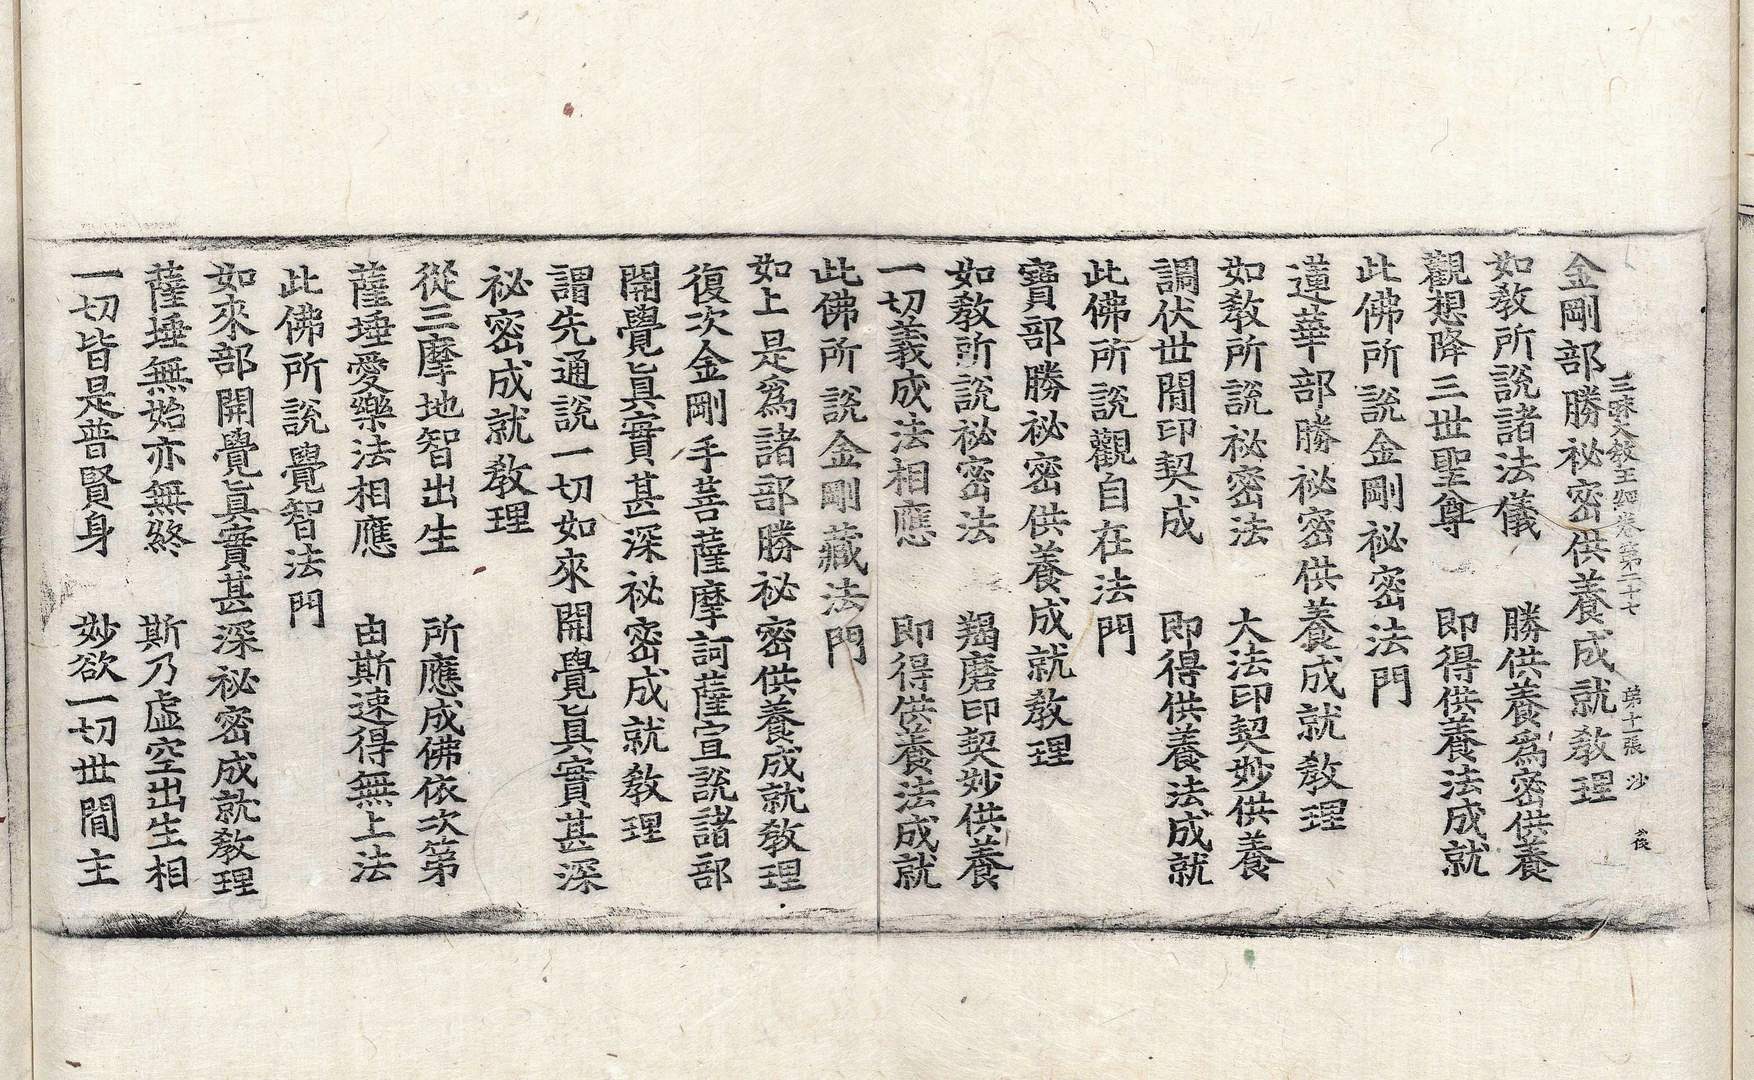 三昧大教王經卷第二十七　第十一張　沙
金剛部勝祕密供養成就教理
如教所說諸法儀　勝供養爲密供養
觀想降三世聖尊　即得供養法成就
此佛所說金剛祕密法門
蓮華部勝祕密供養成就教理
如教所說祕密法　大法印契妙供養
調伏世間印契成　即得供養法成就
此佛所說觀自在法門
寶部勝祕密供養成就教理
如教所說祕密法　羯磨印契妙供養
一切義成法相應　即得供養法成就
此佛所說金剛藏法門
如上是爲諸部勝祕密供養成就教理
復次金剛手菩薩摩訶薩宣說諸部
開覺眞實甚深祕密成就教理
謂先通說一切如來開覺眞實甚深
祕密成就教理
從三摩地智出生　所應成佛依次第
薩埵愛樂法相應　由斯速得無上法
此佛所說覺智法門
如來部開覺眞實甚深祕密成就教理
薩埵無始亦無終　斯乃虛空出生相
一切皆是普賢身　妙欲一切世間主